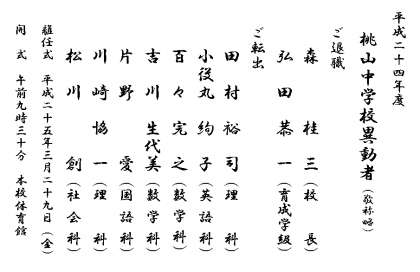 平成二十四年度
桃山中学校異動者（敬称略）
ご退職
森　桂三（校長）
弘田恭一（育成学級）
ご転出
田村裕司（理科）
小役丸絢子（英語科）
百々完之（数学科）
吉川生代美（数学科）
片野愛（国語科）
川崎協一（理科）
松川創（社会科）
離任式　平成二十五年三月二十九日（金）
開式　午前九時三十分　本校体育館